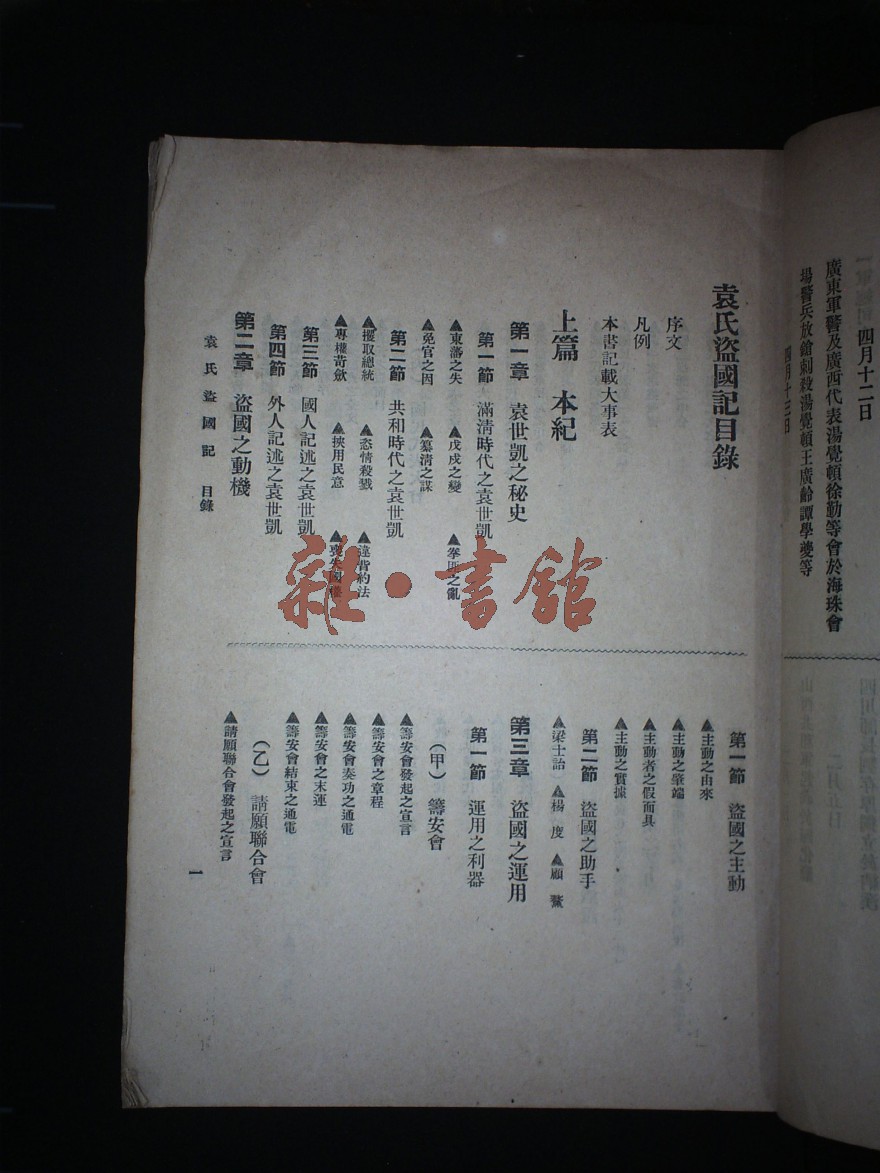 四月十二日
廣東軍警及廣西代表湯覺頓徐勤等會於海珠會
場警兵放鎗刺殺湯覺頓王廣齡譚學夔等
四月十三日
袁氏盜國記目錄
序文
凡例
本書記載大事表
上篇 本紀
第一章 袁世凱之秘史
第一節 滿清時代之袁世凱
▲東藩之失 ▲戊戌之變 ▲拳匪之亂
▲免官之因 ▲纂清之謀
第二節 共和時代之袁世凱
▲攫取總統 ▲恣情殺戮 ▲違背約法
▲專權苛歛 ▲挾用民意 ▲喪失國權
第三節 國人記述之袁世凱
第四節 外人記述之袁世凱
第二章 盜國之動機
第一節 盜國之主動
▲主動之由來
▲主動之肇端
▲主動者之假面具
▲主動之實據
第二節 盜國之助手
▲梁士詒 ▲楊度 ▲顧鰲
第三章 盜國之運用
第一節 運用之利器
(甲) 籌安會
▲籌安會發起之宣言
▲籌安會之章程
▲籌安會奏功之通電
▲籌安會之末運
▲籌安會結束之通電
(乙) 請願聯合會
▲請願聯合會發起之宣言
袁氏盜國記 目錄
一
雜·書館